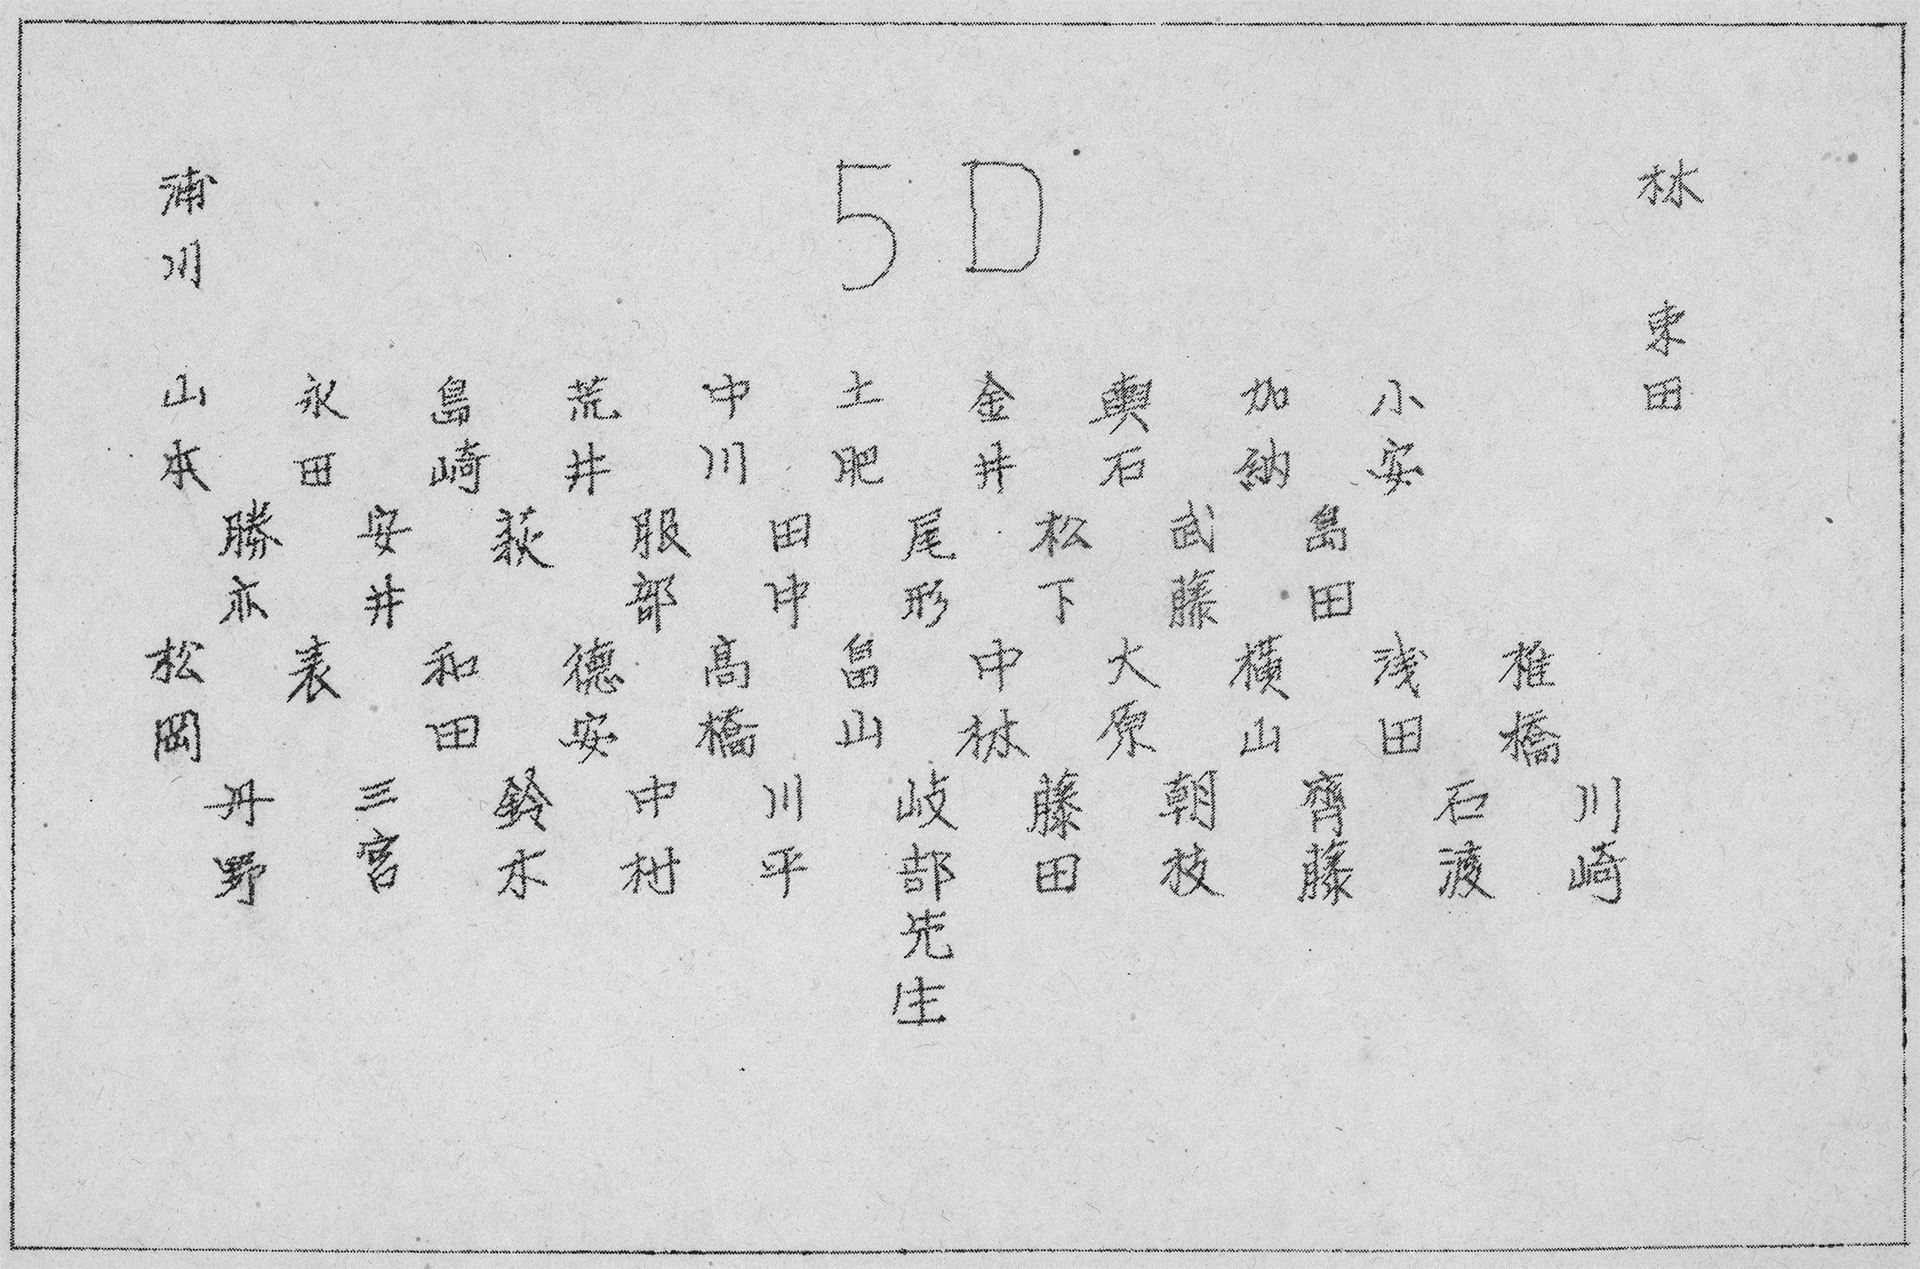 5D
浦川
林
東田
山本 永田 島崎 荒井 中川 土肥 金井 輿石 加納 小安
勝亦 安井 荻 服部 田中 尾形 松下 武藤 島田
松岡 表 和田 德安 高橋 畠山 中林 大原 横山 浅田 椎橋
丹野 三宮 鈴木 中村 川平 岐部先生 藤田 朝枝 齊藤 石渡 川崎